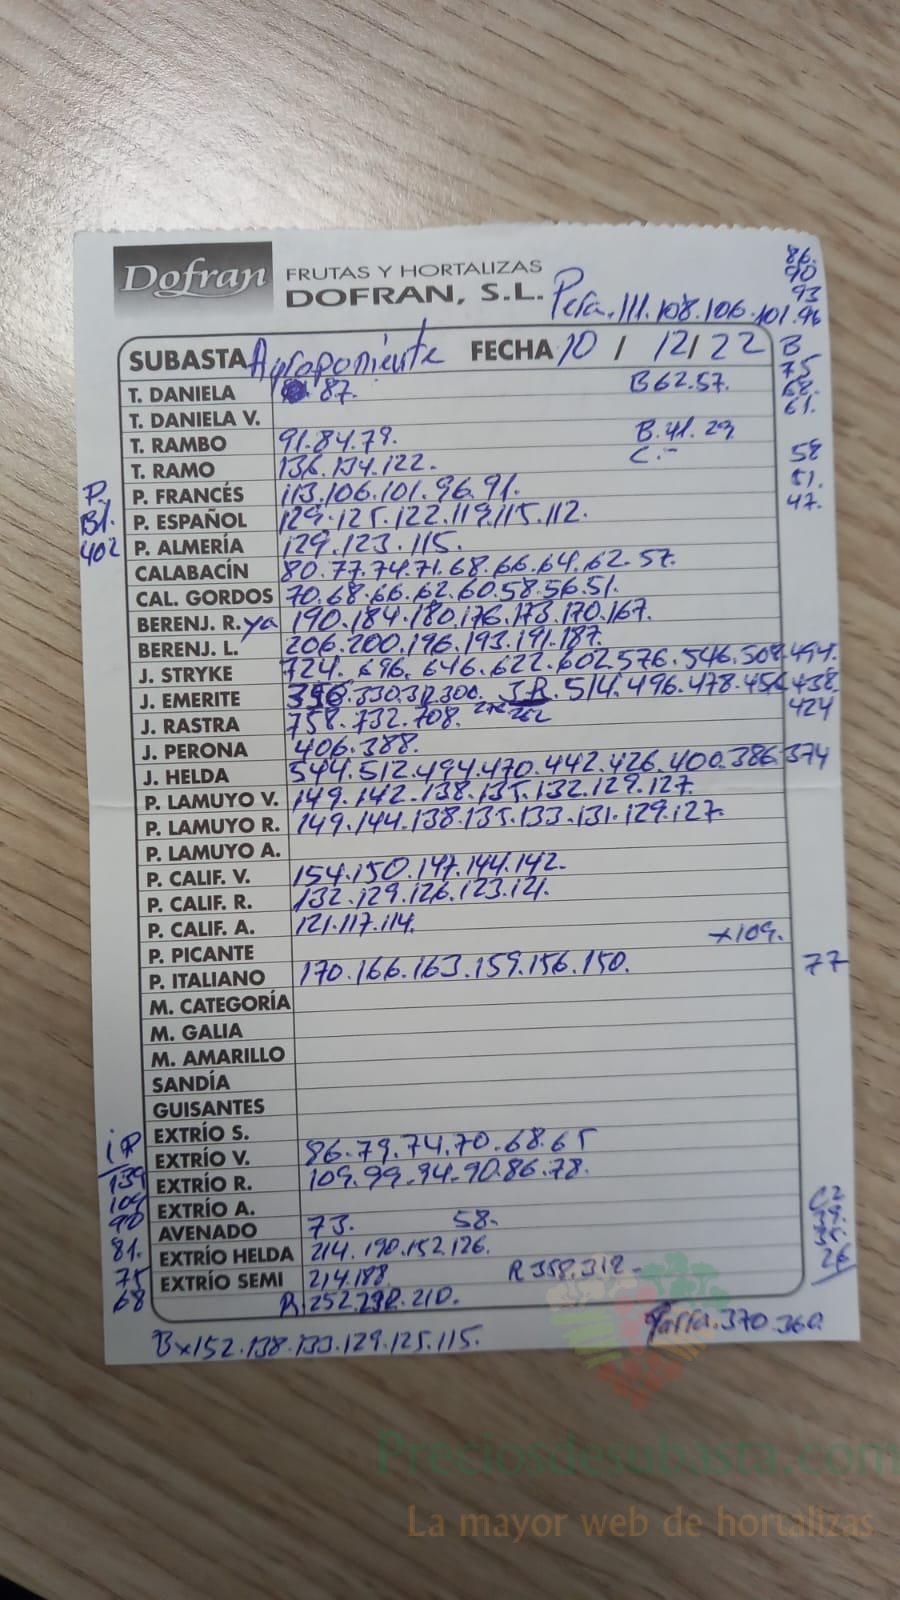 Dofran FRUTAS Y HORTALIZAS
DOFRAN, S.L.
Pera.111.108.106.101.96
86.
90
93
SUBASTA Agroponiente FECHA 10 / 12/ 22
B
75
68.
61.
T. DANIELA 87. B62.57.
T. DANIELA V.
T. RAMBO 91.84.79. B.41.29
T. RAMO 136.134.122. C.-
58
51.
47.
P. FRANCÉS 113.106.101.96.91.
P. ESPAÑOL 129.125.122.119.115.112.
P.
Bl.
402
P. ALMERÍA 129.123.115.
CALABACÍN 80.77.74.71.68.66.64.62.57.
CAL. GORDOS 70.68.66.62.60.58.56.51.
BERENJ. R. ya 190.184.180.176.173.170.167.
BERENJ. L. 206.200.196.193.191.187.
J. STRYKE 724. 696. 646.622.602.576.546.508.494.
J. EMERITE 330. 300. J.R. 514.496.478.456.438.
424
J. RASTRA 758.732.708. 262
J. PERONA 406.388.
J. HELDA 544.512.494.470.442.426.400.386.374
P. LAMUYO V. 149.142.138.135.132.129.127.
P. LAMUYO R. 149.144.138.135.133.131.129.127.
P. LAMUYO A.
P. CALIF. V. 154.150.147.144.142.
P. CALIF. R. 132.129.126.123.121.
P. CALIF. A. 121.117.114.
P. PICANTE x109.
P. ITALIANO 170.166.163.159.156.150. 77
M. CATEGORÍA
M. GALIA
M. AMARILLO
SANDÍA
GUISANTES
EXTRÍO S.
EXTRÍO V. 86.79.74.70.68.65
EXTRÍO R. 109.99.94.90.86.78.
EXTRÍO A.
AVENADO 73. 58.
EXTRÍO HELDA 214.190.152.126.
EXTRÍO SEMI 214.188. R 358.312-
R.252.232.210.
iP
139
109
90
81.
75
68
26
Bx152.138.133.129.125.115.
Garra.370.360
Preciosdesubasta.com
La mayor web de hortalizas